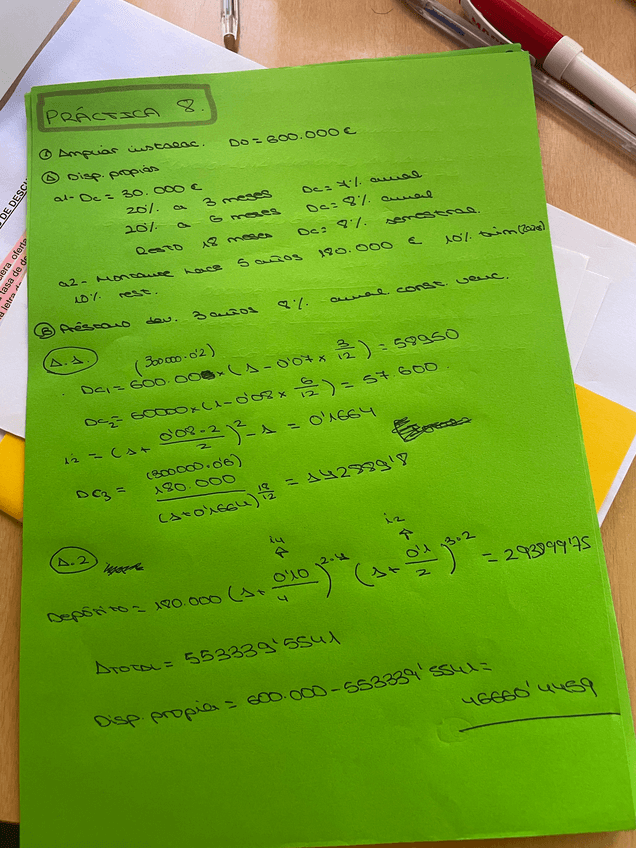 PRÁCTICA 8.
① Ampliar instalac. D0 = 600.000 €
Ⓐ Disp. propias
a1- Dc = 30.000 €
20% a 3 meses Dc = 7% anual
20% a 6 meses Dc = 8% anual
Resto 18 meses Dc = 8% semestral.
a2- Montante hace 5 años 180.000 € 10% trim (2 años)
10% rest.
Ⓑ Préstamo dev. 3 años 8% anual const. venc.
A.1.
(300000·0'2)
Dc1 = 600.000 × (1 - 0'07 × 3/12) = 58950
Dc2 = 60000 × (1 - 0'08 × 6/12) = 57.600.
i2 = (1 + 0'08·2/2)^2 - 1 = 0'1664
(300000·0'6)
Dc3 = 180.000/(1+0'1664)^18/12 = 142889'8
A.2
i4 i2
Depósito = 180.000 (1 + 0'10/4)^2·4 (1 + 0'1/2)^3·2 = 293899'75
Atotal = 553339'5541
Disp. propia = 600.000 - 553339'5541 =
46660'4459